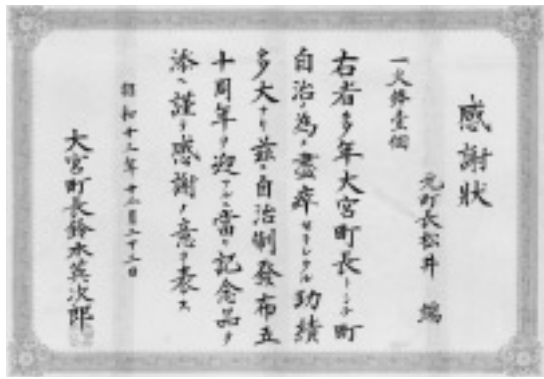 感謝狀
元町長松井 編
一火鉢壹個
右者多年大宮町長トシテ町
自治ノ為メ盡瘁セラレタル功績
多大ナリ茲ニ自治制發布五
十周年ヲ迎フルニ當リ記念品ヲ
添ヘ謹テ感謝ノ意ヲ表ス
昭和十三年十二月二十三日
大宮町長鈴木英次郎